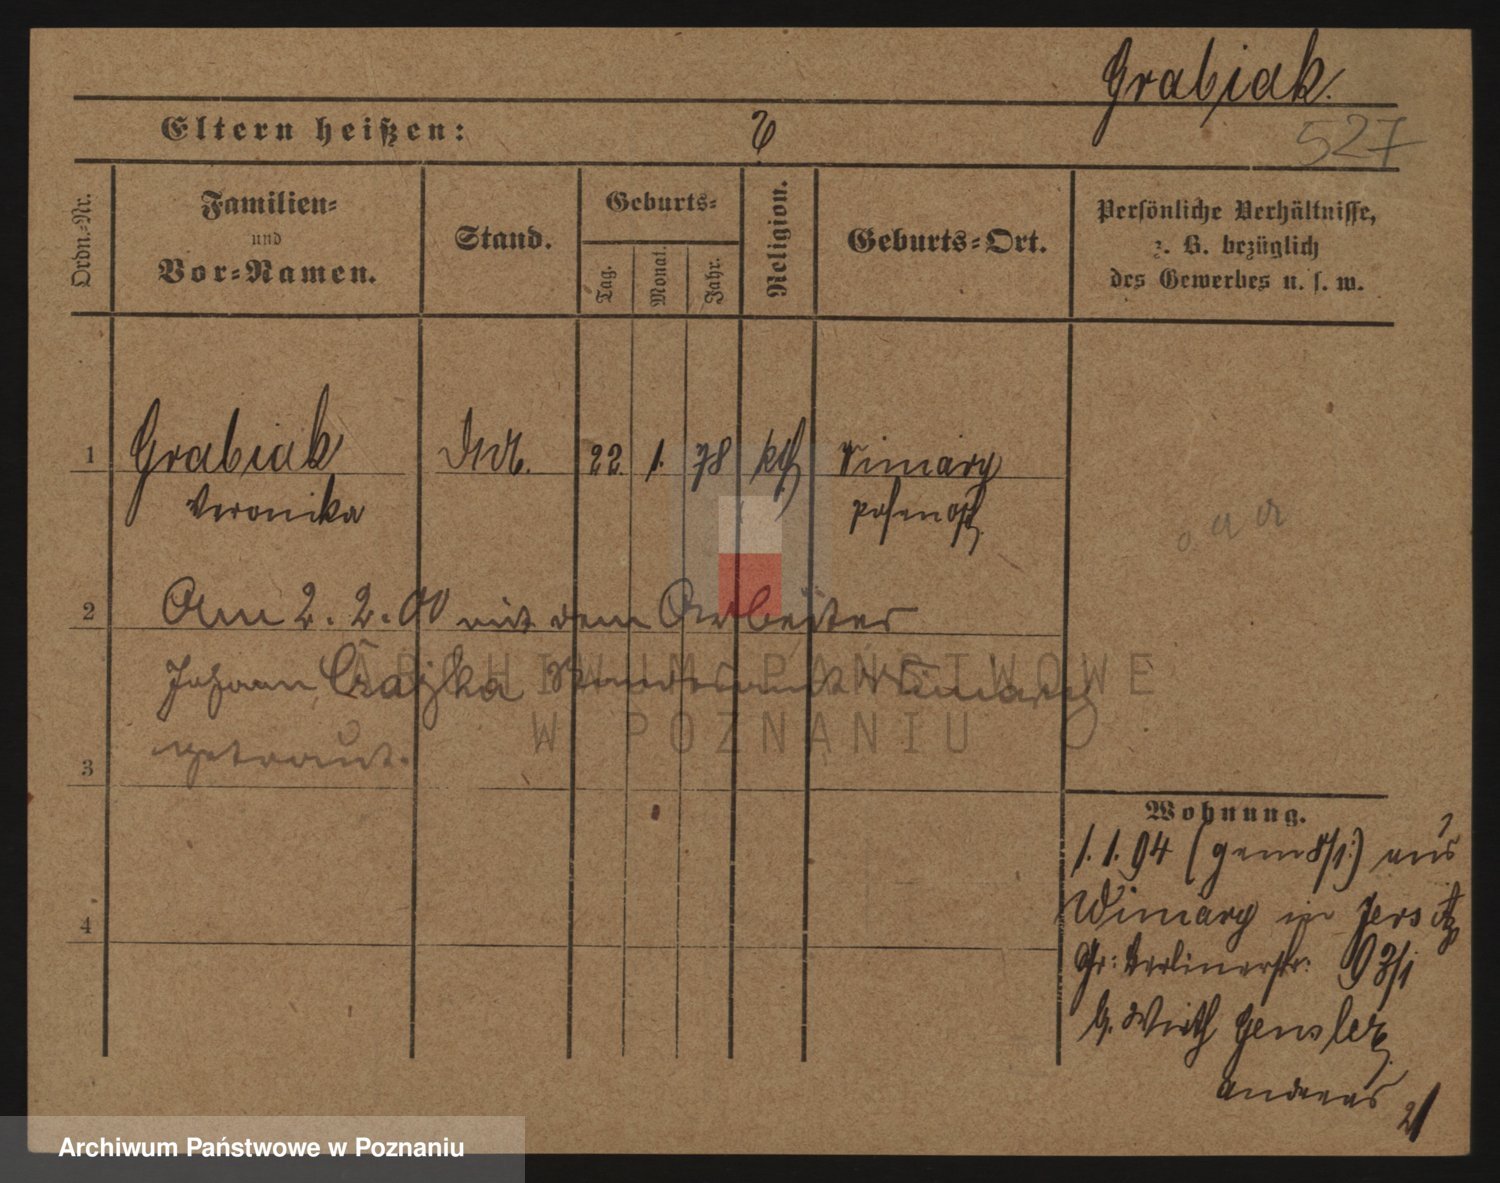 Grabiak.
Eltern heißen:
527
Ordn.-Nr.
Familien-
und
Vor-Namen.
Stand.
Geburts-
Tag.
Monat.
Jahr.
Religion.
Geburts-Ort.
Persönliche Verhältnisse,
z. B. bezüglich
des Gewerbes u. s. w.
1 Grabiak 22. 1. 78 kth Winiary
Veronika Posen Ost
2 Am 2. 2. 00 mit dem Arbeiter
Johann Standesamt Winiary
getraut.
3
4
Wohnung.
1. 1. 94 (gem 8/1.) aus
Winiary in Jersitz
Gr: Berlinerstr: 93/1
b. Wirth Gensler
Andreas
21
ARCHIWUM PAŃSTWOWE
W POZNANIU
Archiwum Państwowe w Poznaniu